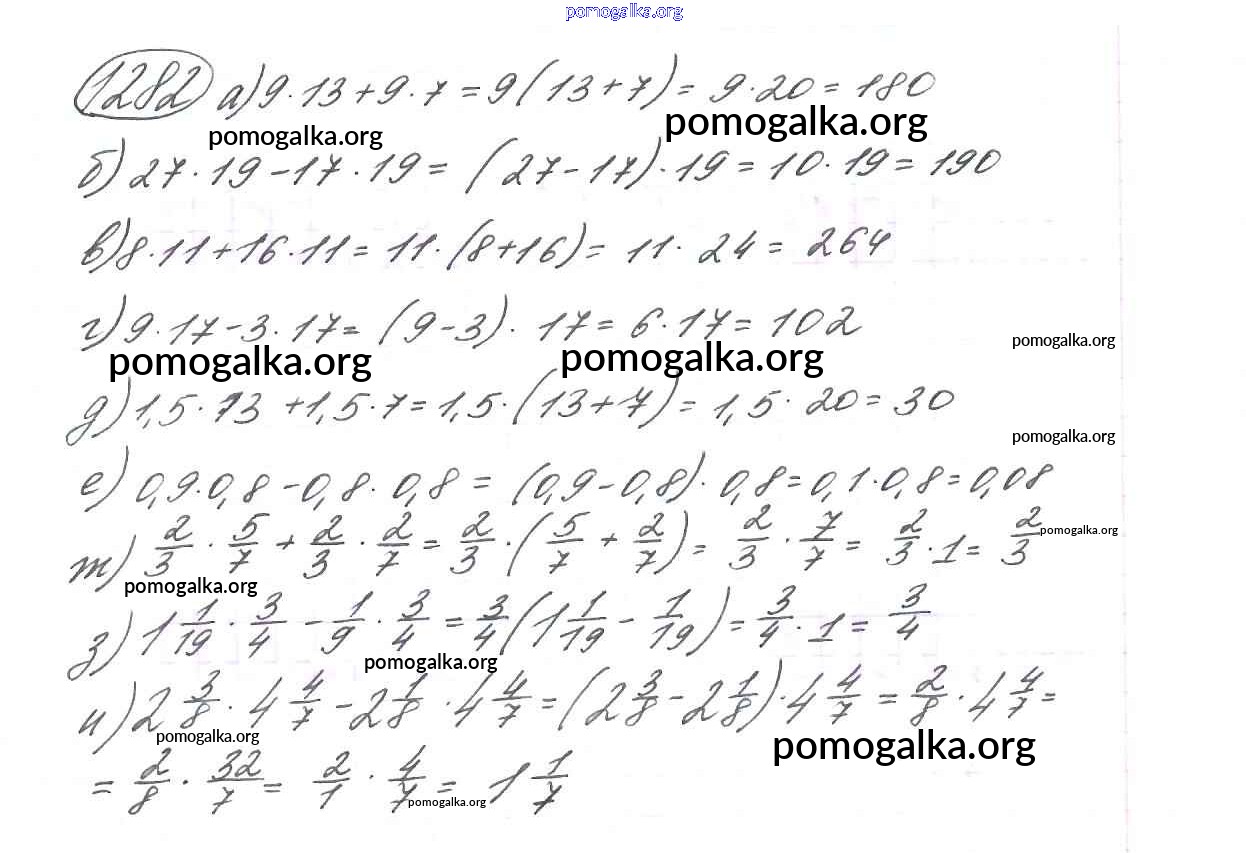 pomogalka.org
1282 а) 9·13+9·7=9(13+7)=9·20=180
pomogalka.org pomogalka.org
б) 27·19-17·19=(27-17)·19=10·19=190
в) 8·11+16·11=11·(8+16)=11·24=264
г) 9·17-3·17=(9-3)·17=6·17=102
pomogalka.org
pomogalka.org pomogalka.org
д) 1,5·13+1,5·7=1,5·(13+7)=1,5·20=30
pomogalka.org
е) 0,9·0,8-0,8·0,8=(0,9-0,8)·0,8=0,1·0,8=0,08
ж) 2/3·5/7+2/3·2/7=2/3·(5/7+2/7)=2/3·7/7=2/3·1=2/3
pomogalka.org
pomogalka.org
з) 1 1/19·3/4-1/9·3/4=3/4(1 1/19-1/19)=3/4·1=3/4
pomogalka.org
и) 2 3/8·4 4/7-2 1/8·4 4/7=(2 3/8-2 1/8)·4 4/7=2/8·4 4/7=
pomogalka.org pomogalka.org
=2/8·32/7=2/1·4/7=1 1/7
pomogalka.org